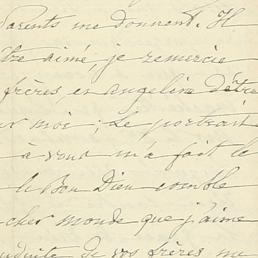 Parents me donnent. Il
être aimé je remercie
frères, en angelina d'être
ur moi ; Le portrait
à vous m'a fait le
le Bon Dieu comble
cher monde que j'aime
nduite de vos frères me